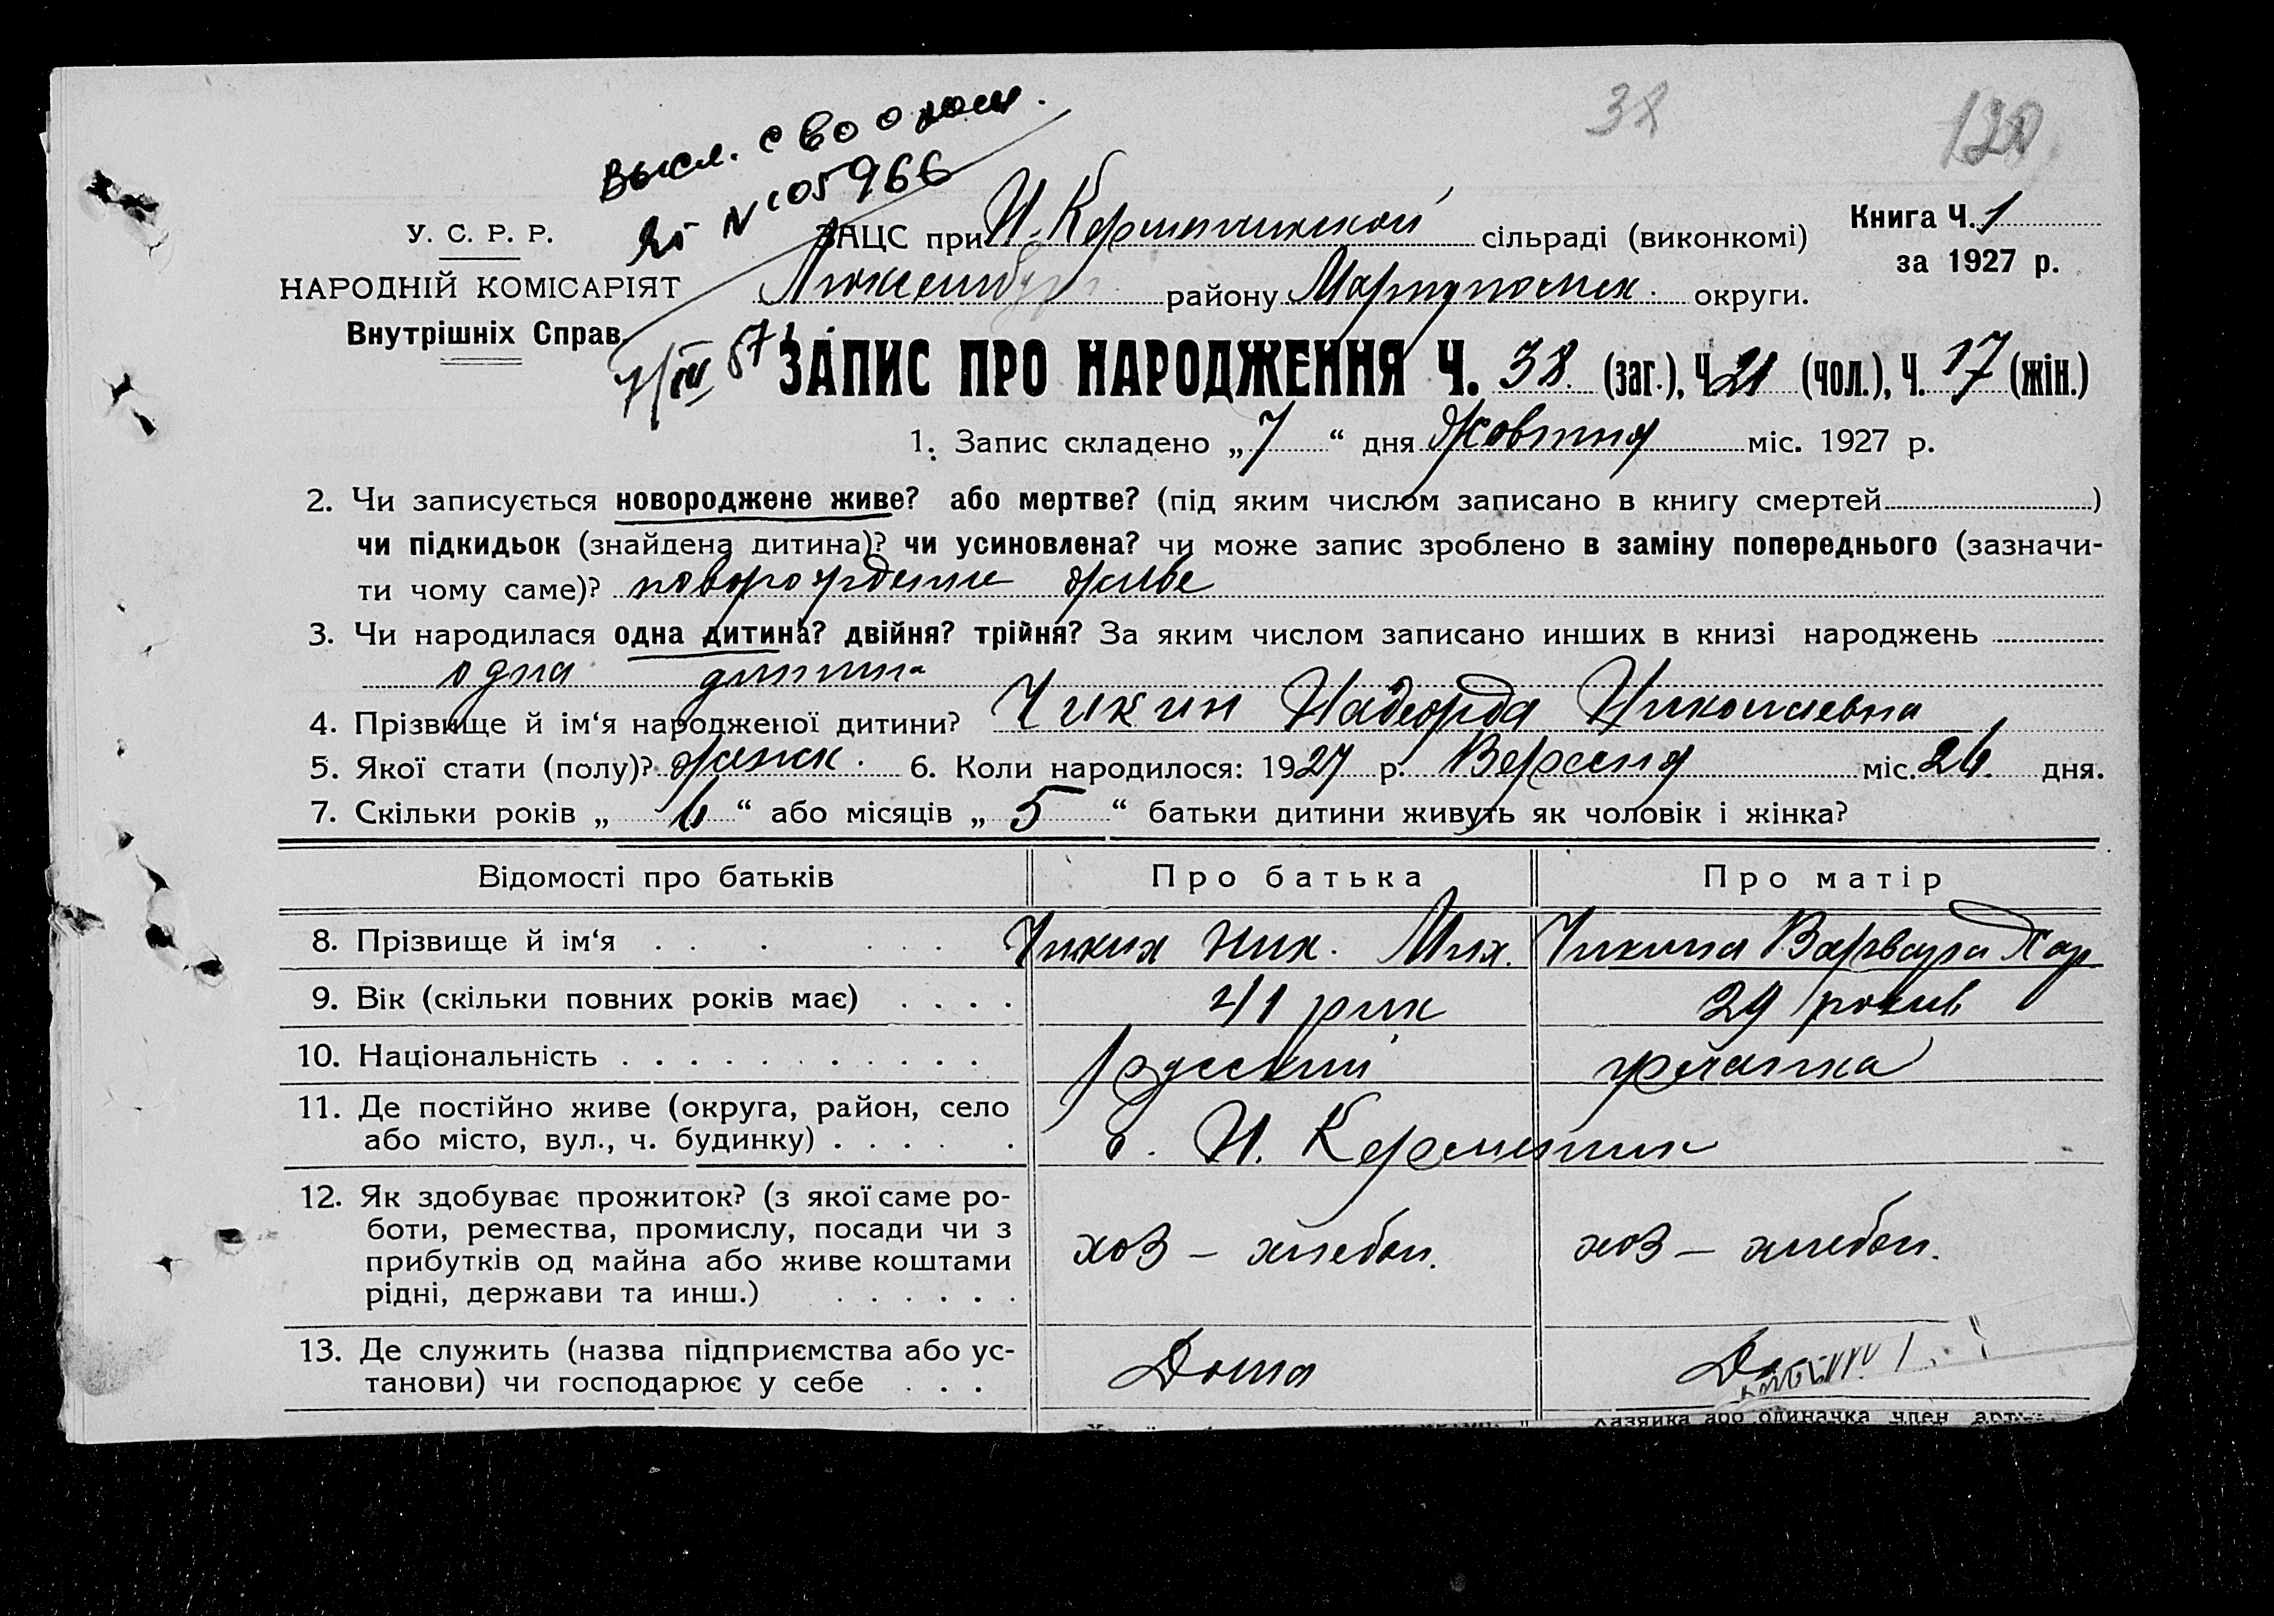 38
120
Высл. с во о
№ 05966
У. С. Р. Р.
ЗАЦС при Н. Керменчикской сільраді (виконкомі)
Книга Ч. 1
НАРОДНІЙ КОМІСАРІЯТ
Люксембург району Мариупольск. округи.
за 1927 р.
Внутрішніх Справ.
7/III 57
ЗАПИС ПРО НАРОДЖЕННЯ Ч. 38 (заг.), Ч. 21 (чол.), Ч. 17 (жін.)
1. Запис складено „ 7 “ дня Жовтня міс. 1927 р.
2. Чи записується новороджене живе? або мертве? (під яким числом записано в книгу смертей )
чи підкидьок (знайдена дитина)? чи усиновлена? чи може запис зроблено в заміну попереднього (зазначи-
ти чому саме)? новорождене живе
3. Чи народилася одна дитина? двійня? трійня? За яким числом записано инших в книзі народжень
одна дитина
4. Прізвище й ім‘я народженої дитини? Чикин Надежда Николаевна
5. Якої стати (полу)? женск. 6. Коли народилося: 1927 р. Версеня міс. 26 дня.
7. Скільки років „ 6 “ або місяців „ 5 “ батьки дитини живуть як чоловік і жінка?
Відомості про батьків Про батька Про матір
8. Прізвище й ім‘я . . . . . . Чикин Ник. Мих. Чикина Варвара Хар
9. Вік (скільки повних років має) . . . . 41 рик 29 рокив
10. Національність . . . . . . . . . . . русский гречанка
11. Де постійно живе (округа, район, село
або місто, вул., ч. будинку) . . . . . с. Н. Керменчик
12. Як здобуває прожиток? (з якої саме ро-
боти, ремества, промислу, посади чи з
прибутків од майна або живе коштами хоз – хлебоп. хоз – хлебоп.
рідні, держави та инш.) . . . . . .
13. Де служить (назва підприємства або ус-
танови) чи господарює у себе . . . Дома До
хазяйка або одиначка член